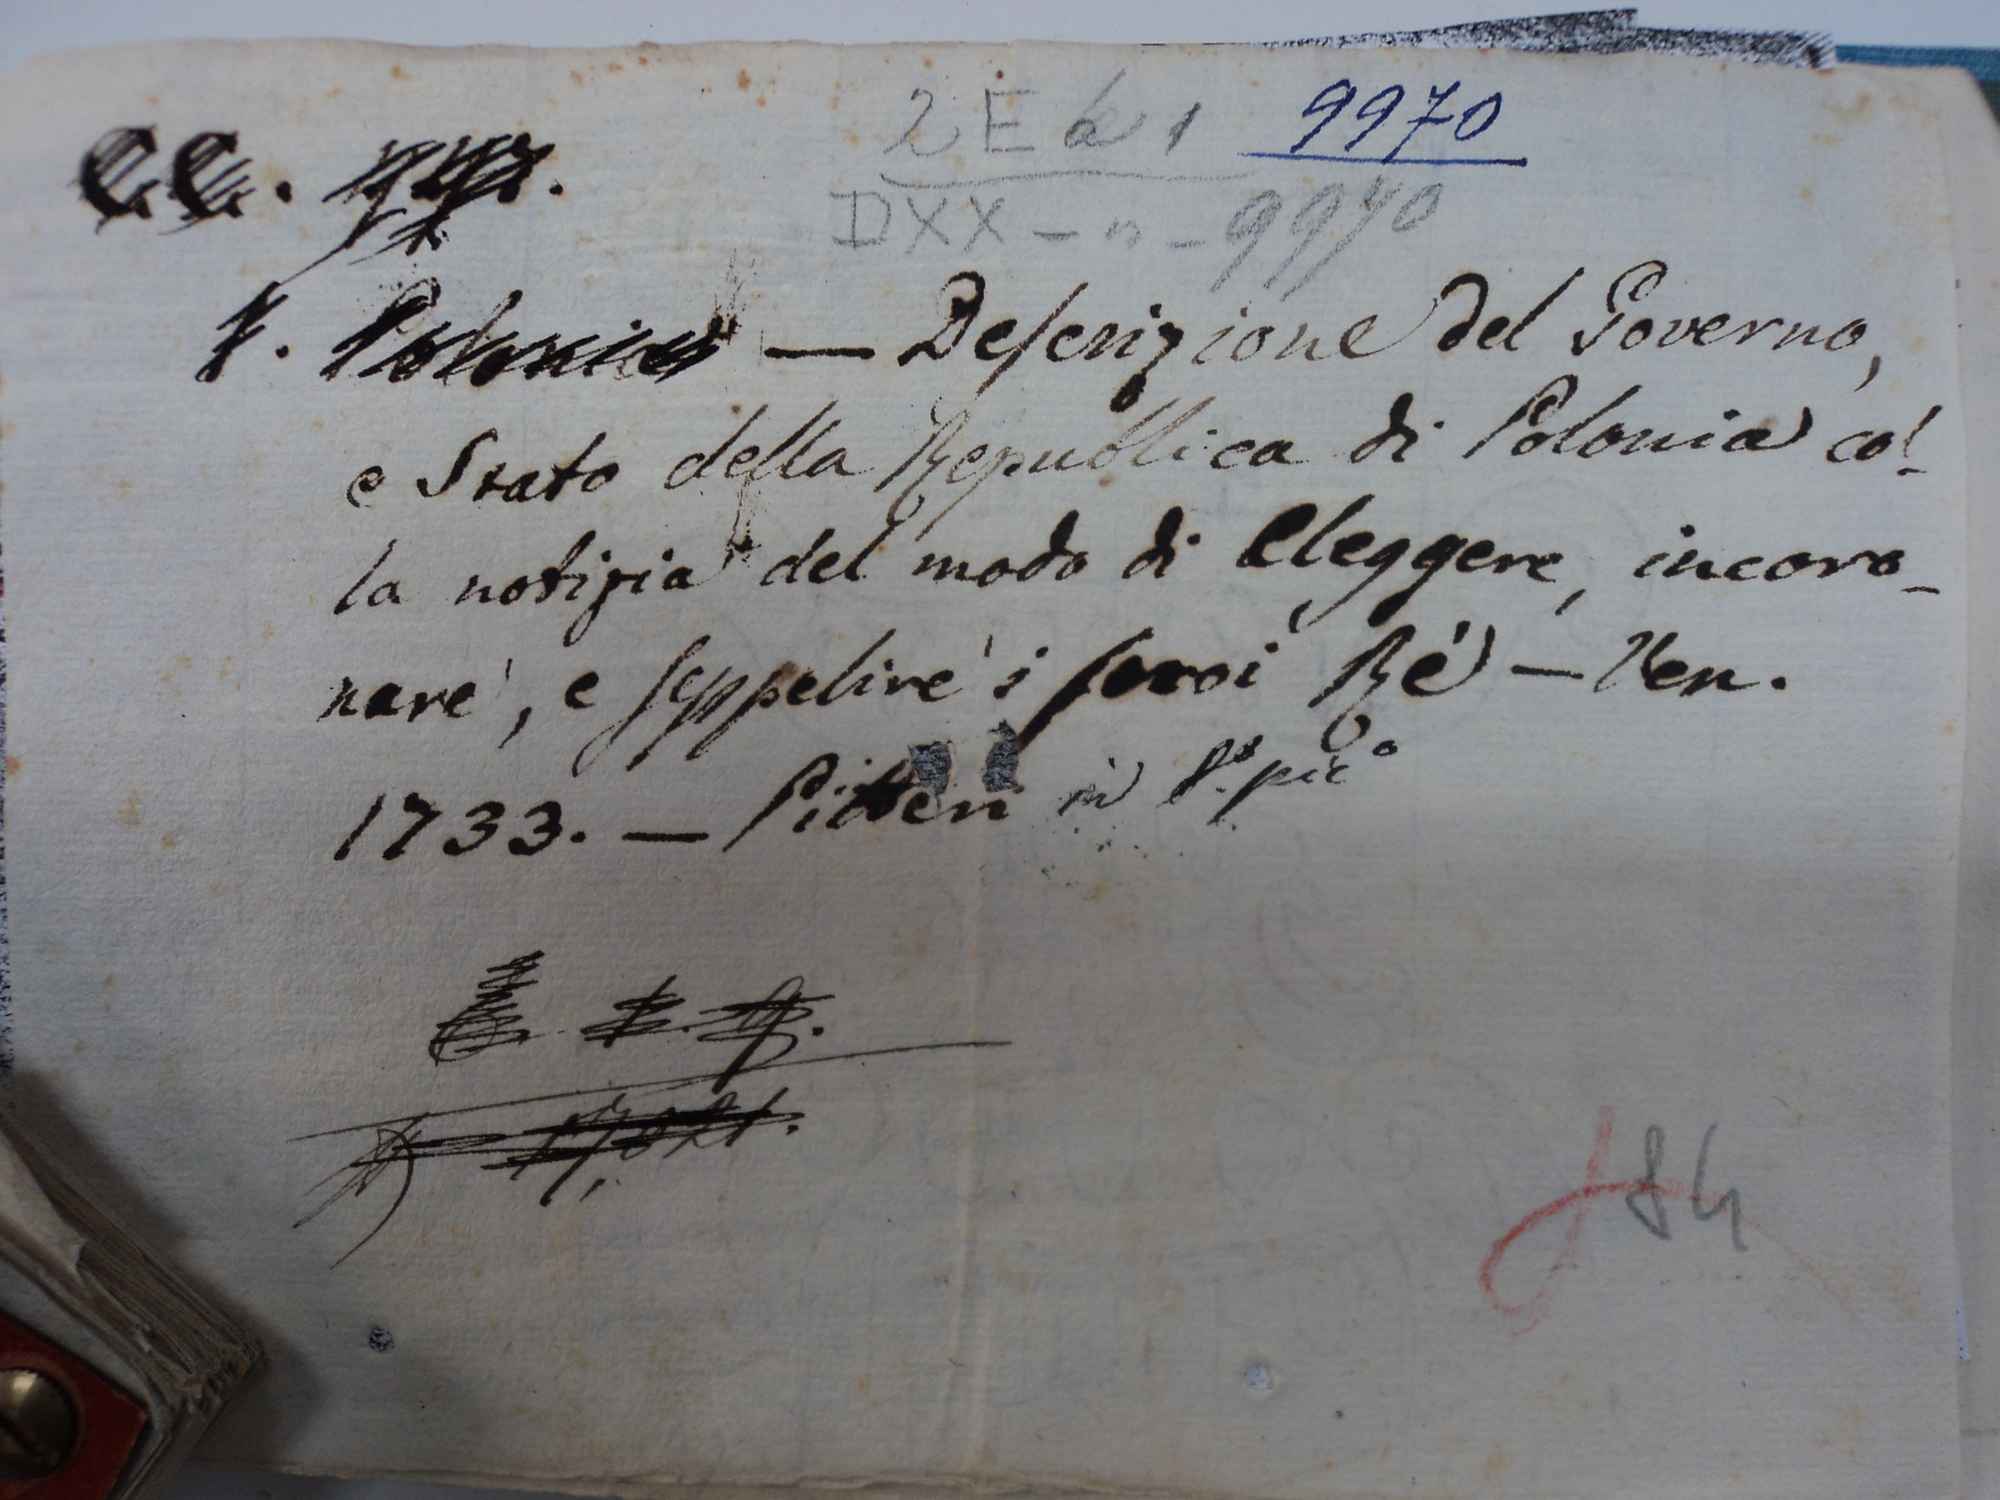 9970
DXX - n - 9970
Descrizione del Governo,
e Stato della Republica di Polonia col-
la notizia del modo di eleggere, incoro-
nare, e seppelire i suoi Ré — Ven.
1733. — Pitteri in 8.° pic.°
84